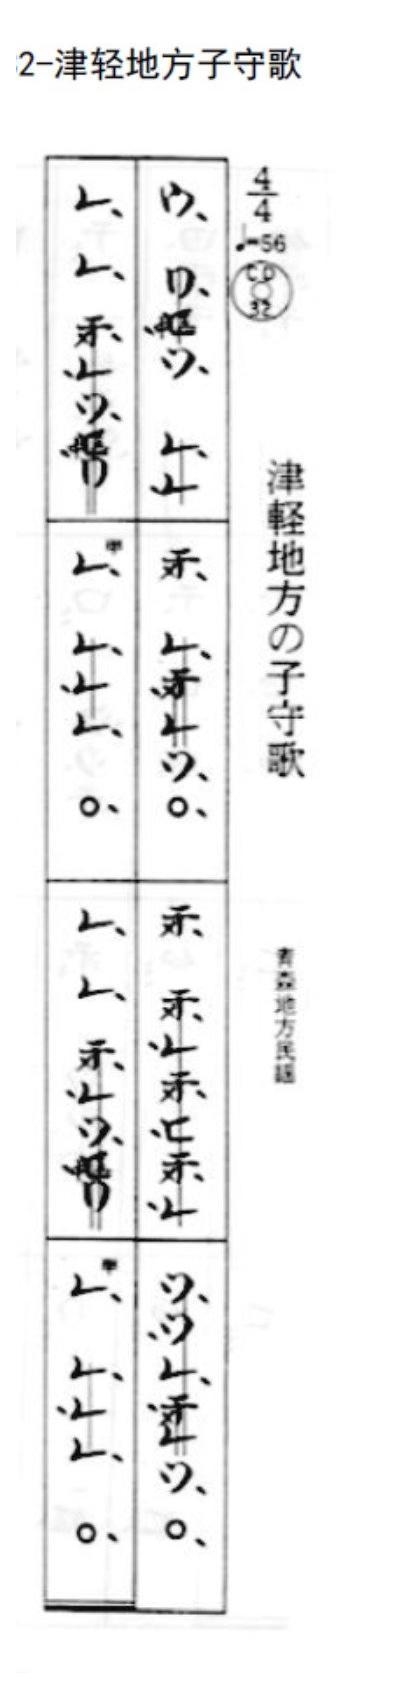 2-津轻地方子守歌
4/4
♩=56
CD
32
津軽地方の子守歌
青森地方民謡
ウ、ロ、ツ、レ、レ
チ、レ、チレツ、○、
チ、チ、レチ、ヒチ、レ
ツ、ツレ、チレツ、○、
レ、レ、チ、レツ、ロ
甲レ、レ、レレ、○、
レ、レ、チ、レツ、ロ
甲レ、レ、レレ、○、